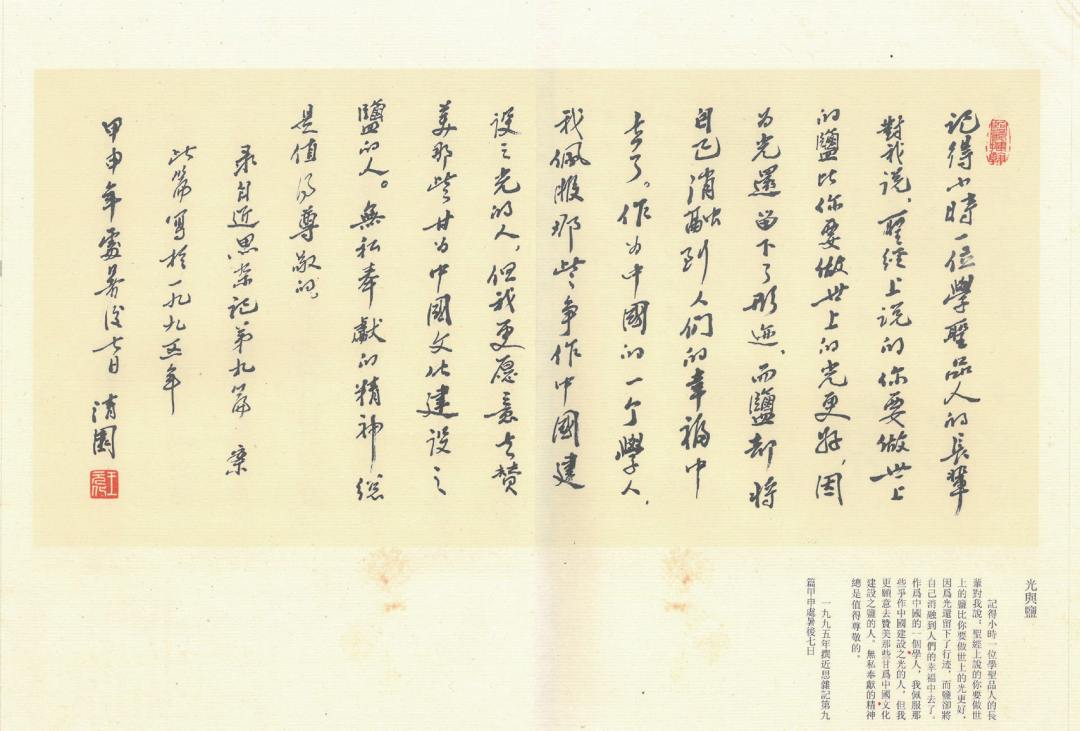 记得小時一位學聖品人的長輩
對我说，聖经上说的你要做世上
的鹽比你要做世上的光更好，因
为光還留下了形迹，而鹽却将
自己消融到人们的幸福中
去了。作为中國的一个學人，
我佩服那些争作中國建
设之光的人，但我更愿意去赞
美那些甘为中國文化建设之
鹽的人。無私奉献的精神總
是值得尊敬的。
录自近思杂记第九篇
此篇寫於一九九五年
甲申年處暑後七日
光與鹽
記得小時一位學聖品人的長
輩對我說：聖經上說的你要做世
上的鹽比你要做世上的光更好，
因爲光還留下了行迹，而鹽卻將
自己消融到人們的幸福中去了。
作爲中國的一個學人，我佩服那
些爭作中國建設之光的人，但我
更願意去贊美那些甘爲中國文化
建設之鹽的人。無私奉獻的精神
總是值得尊敬的。
一九九五年撰近思雜記第九
篇甲申處暑後七日